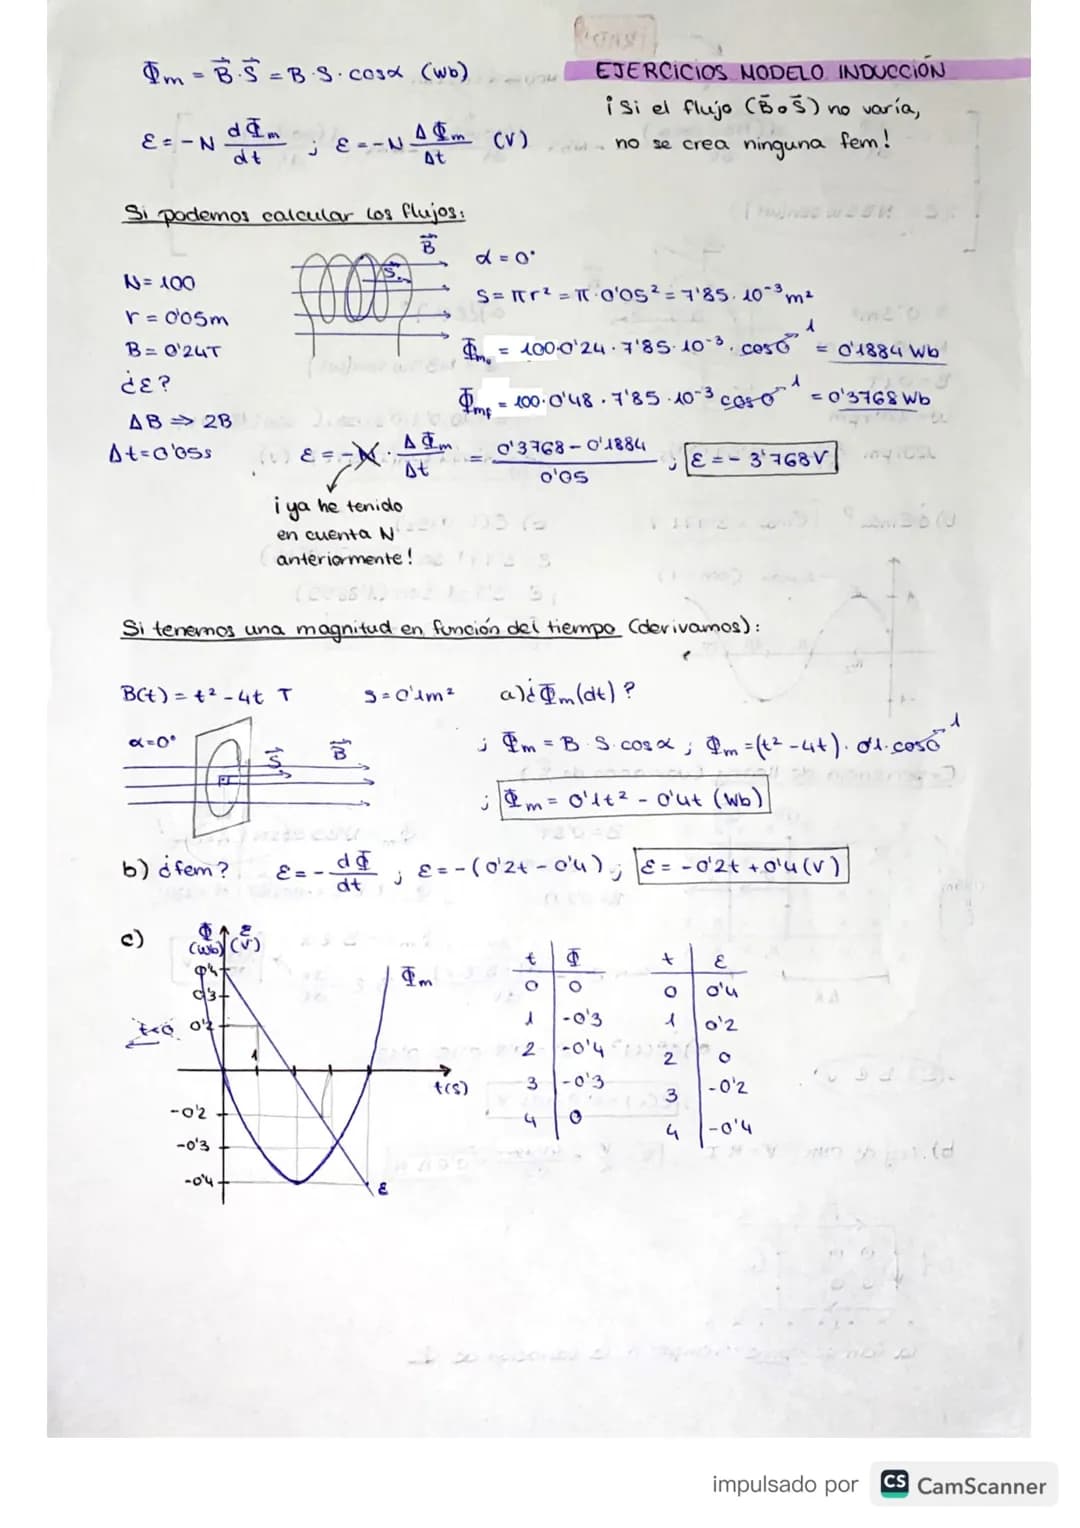 EJERCICIOS MODELO INDUCCIÓN
Φm = B⃗·S⃗ = B·S·cosα (wb)
¡Si el flujo (B⃗ o S⃗) no varía,
no se crea ninguna fem!
ε = -N dΦm/dt ; ε = -N ΔΦm/Δt (V)
Si podemos calcular los flujos:
N = 100
r = 0'05m
B = 0'24T
¿ε?
ΔB ⇒ 2B
Δt = 0'05s
B⃗
S⃗
α = 0°
S = πr² = π·0'05² = 7'85·10⁻³ m²
Φm₀ = 100·0'24·7'85·10⁻³·cos0 1 = 0'1884 Wb
Φmf = 100·0'48·7'85·10⁻³ cos0 1 = 0'3768 Wb
ε = -N·ΔΦm/Δt = 0'3768 - 0'1884 / 0'05 ; ε = -3'768V
¡ya he tenido
en cuenta N
anteriormente!
Si tenemos una magnitud en función del tiempo (derivamos):
B(t) = t² - 4t T S = 0'1m² a) ¿Φm(dt)?
α = 0°
S⃗
B⃗
; Φm = B·S·cosα ; Φm = (t² - 4t)·0'1·cos0 1
; Φm = 0'1t² - 0'4t (Wb)
b) ¿fem? ε = - dΦ/dt ; ε = -(0'2t - 0'4) ; ε = -0'2t + 0'4 (V)
c)
Φ ε
(Wb) (V)
0'4
0'3
0'2
1
-0'2
-0'3
-0'4
Φm
t(s)
ε
t Φ
0 0
1 -0'3
2 -0'4
3 -0'3
4 0
t ε
0 0'4
1 0'2
2 0
3 -0'2
4 -0'4
impulsado por CS CamScanner